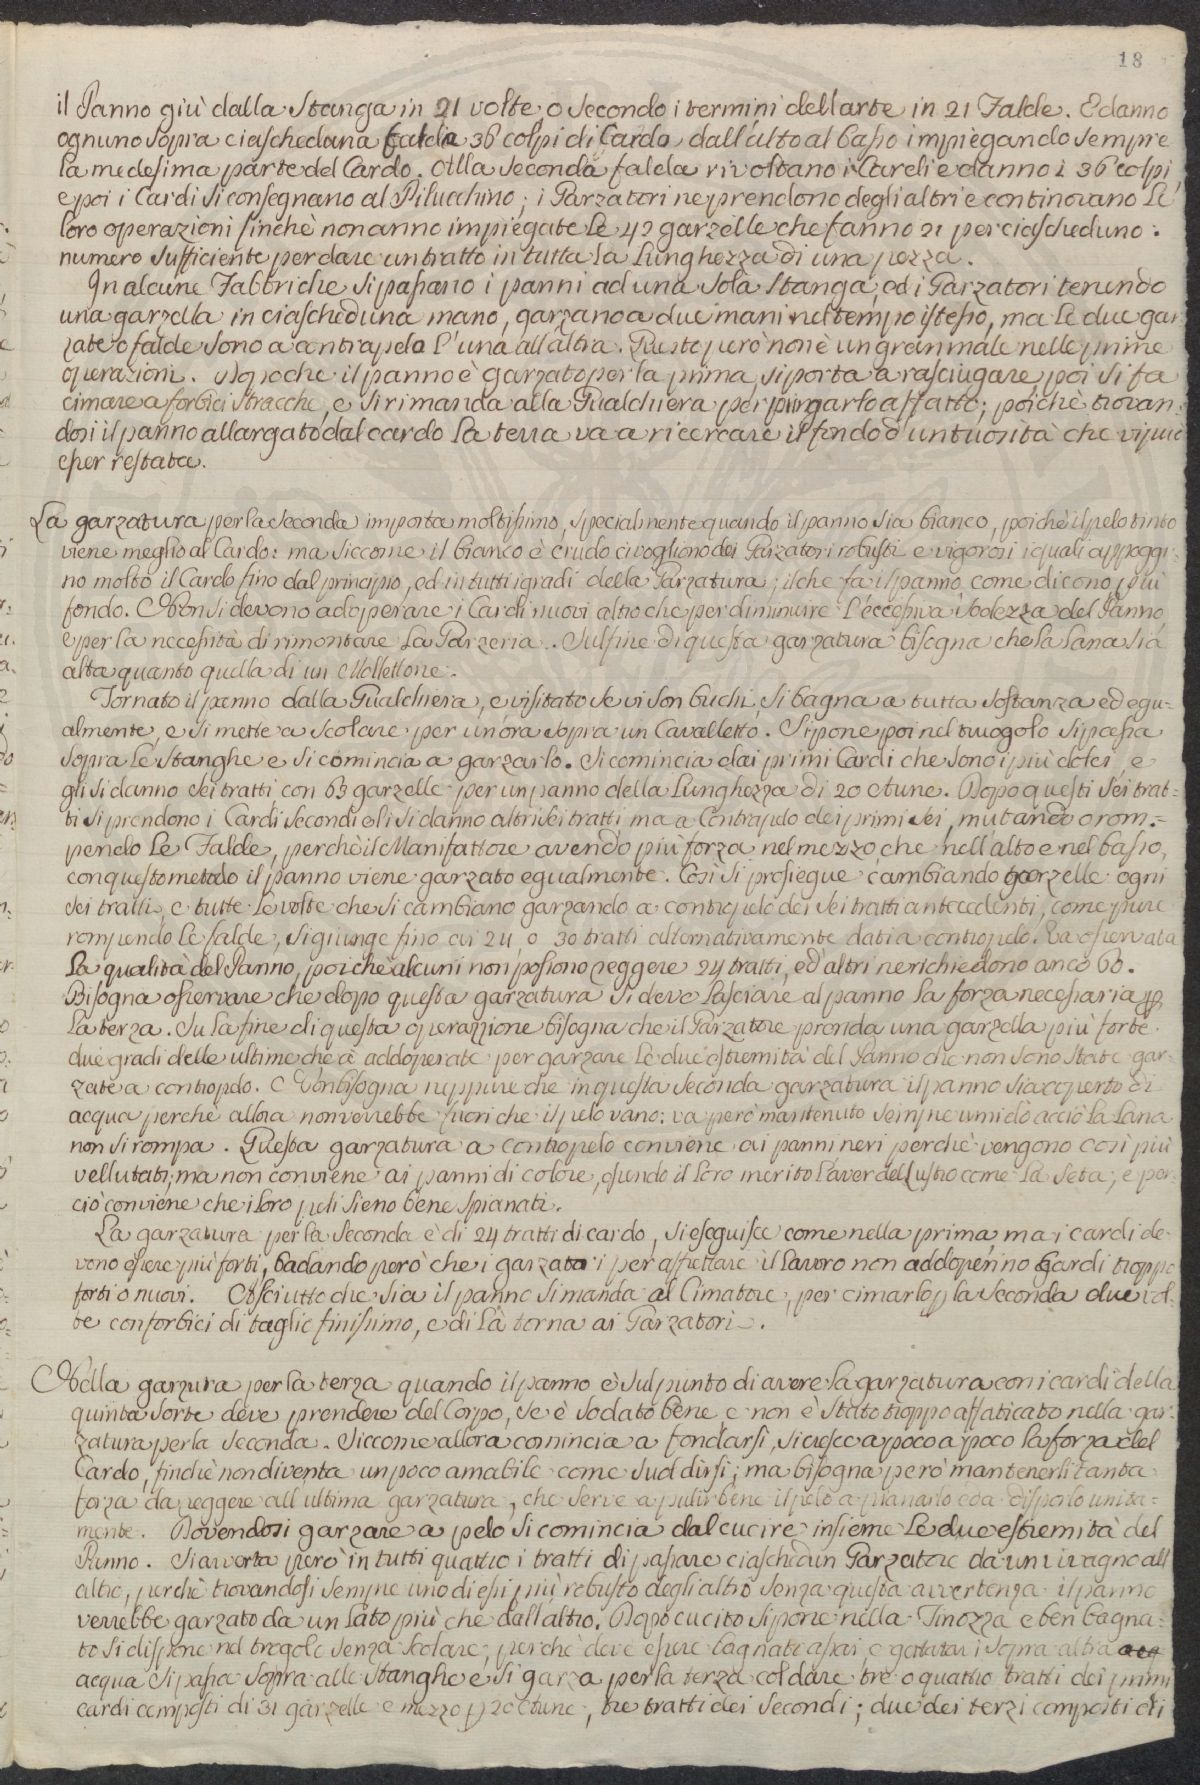 18
il Panno giù dalla Stanga in 21 volte, o secondo i termini dell'arte in 21 Falde. E danno
ognuno sopra ciascheduna falda 36 colpi di Cardo dall'alto al basso impiegando sempre
la medesima parte del Cardo. Alla seconda falda rivoltano i Cardi e danno i 36 colpi,
e poi i Cardi si consegnano al Pilucchino; i Garzatori ne prendono degli altri e continovano le
loro operazioni finchè non anno impiegate le 42 garzelle che fanno 21 per ciascheduno:
numero sufficiente per dare un tratto in tutta la Lunghezza di una pezza.
In alcune Fabbriche si passano i panni ad una sola Stanga, ed i Garzatori tenendo
una garzella in ciascheduna mano, garzano a due mani nel tempo istesso, ma le due gar
zate o falde sono a contrapelo l'una all'altra. Questo però non è un gran male nelle prime
operazioni. Dopo che il panno è garzato per la prima, si porta a rasciugare, poi si fa
cimare a forbici stracche, e si rimanda alla Gualchiera per purgarlo affatto; poichè trovan-
dosi il panno allargato dal cardo la terra va a ricercare il fondo d'untuosità che vi può
esser restata.
La garzatura per la seconda importa moltissimo, specialmente quando il panno sia bianco, poichè il pelo tinto
viene meglio al Cardo: ma siccome il bianco è crudo ci vogliono dei Garzatori robusti e vigorosi i quali appoggi-
no molto il Cardo fino dal principio, ed in tutti i gradi della Garzatura; il che fa il panno, come dicono, più
fondo. Non si devono adoperare i Cardi nuovi altro che per diminuire l'eccessiva sodezza del Panno,
e per la necessità di rimontare la Garzeria. Sul fine di questa garzatura bisogna che la lana sia
alta quanto quella di un Mollettone.
Tornato il panno dalla Gualchiera, e visitato se vi son buchi, si bagna a tutta sostanza ed egu-
almente, e si mette a scolare per un'ora sopra un Cavalletto. Si pone poi nel truogolo si passa
sopra le Stanghe e si comincia a garzarlo. Si comincia dai primi Cardi che sono i più dolci, e
gli si danno sei tratti con 63 garzelle per un panno della Lunghezza di 20 Etune. Dopo questi sei trat-
ti si prendono i Cardi secondi e li si danno altri sei tratti, ma a Contrapelo dei primi sei, mutando o rom-
pendo le Falde, perchè il Manifattore avendo più forza nel mezzo, che nell'alto e nel basso,
con questo metodo il panno viene garzato egualmente. Così si prosiegue cambiando garzelle ogni
sei tratti, e tutte le volte che si cambiano garzando a contropelo dei sei tratti antecedenti, come pure
rompendo le falde, si giunge fino ai 24, o 30 tratti alternativamente dati a contropelo. Va osservata
la qualità del Panno, poichè alcuni non possono reggere 24 tratti, ed altri ne richiedono anco 60.
Bisogna osservare che dopo questa garzatura si deve lasciare al panno la forza necessaria p
la terza. Su la fine di questa operazione bisogna che il Garzatore prenda una garzella più forte
due gradi delle ultime che à addoperate per garzare le due estremità del Panno che non sono state gar-
zate a contropelo. Non bisogna neppure che in questa seconda garzatura il panno sia coperto di
acqua perchè allora non verrebbe fuori che il pelo vano: va però mantenuto sempre umido acciò la Lana
non si rompa. Questa garzatura a contropelo conviene ai panni neri perchè vengono così più
vellutati; ma non conviene ai panni di colore, essendo il loro merito l'aver del Lustro come la seta; e per-
ciò conviene che i loro peli sieno bene spianati.
La garzatura per la seconda è di 24 tratti di cardo, si eseguisce come nella prima, ma i cardi de-
vono essere più forti, badando però che i garzatori per affrettare il lavoro non addoperino Cardi troppo
forti o nuovi. Asciutto che sia il panno si manda al Cimatore, per cimarlo p la seconda due vol-
te con forbici di taglio finissimo, e di là torna ai Garzatori.
Nella garzura per la terza quando il panno è sul punto di avere la garzatura con i cardi della
quinta sorte deve prendere del Corpo, se è sodato bene e non è stato troppo affaticato nella gar-
zatura per la seconda. Siccome allora comincia a fondarsi, si cresce a poco a poco la forza del
Cardo, finchè non diventa un poco amabile come suol dirsi; ma bisogna però mantenerli tanta
forza da reggere all'ultima garzatura, che serve a pulir bene il pelo a pianarlo e da disporlo unita-
mente. Dovendosi garzare a pelo, si comincia dal cucire insieme le due estremità del
Panno. Si avverta però in tutti quattro i tratti di passare ciaschedun Garzatore da un vivagno all'
altro, perchè trovandosi sempre uno di essi più robusto degli altro senza questa avvertenza il panno
verrebbe garzato da un lato più che dall'altro. Dopo cucito si pone nella Tinozza e ben bagna-
to si dispone nel trogolo senza scolare, perchè deve essere bagnato assai, e gettatavi sopra altra
acqua si passa sopra alle Stanghe e si garza per la terza col dare tre o quattro tratti dei primi
cardi composti di 31 garzelle e mezzo p 20 Etune, tre tratti dei secondi; due dei terzi composti di